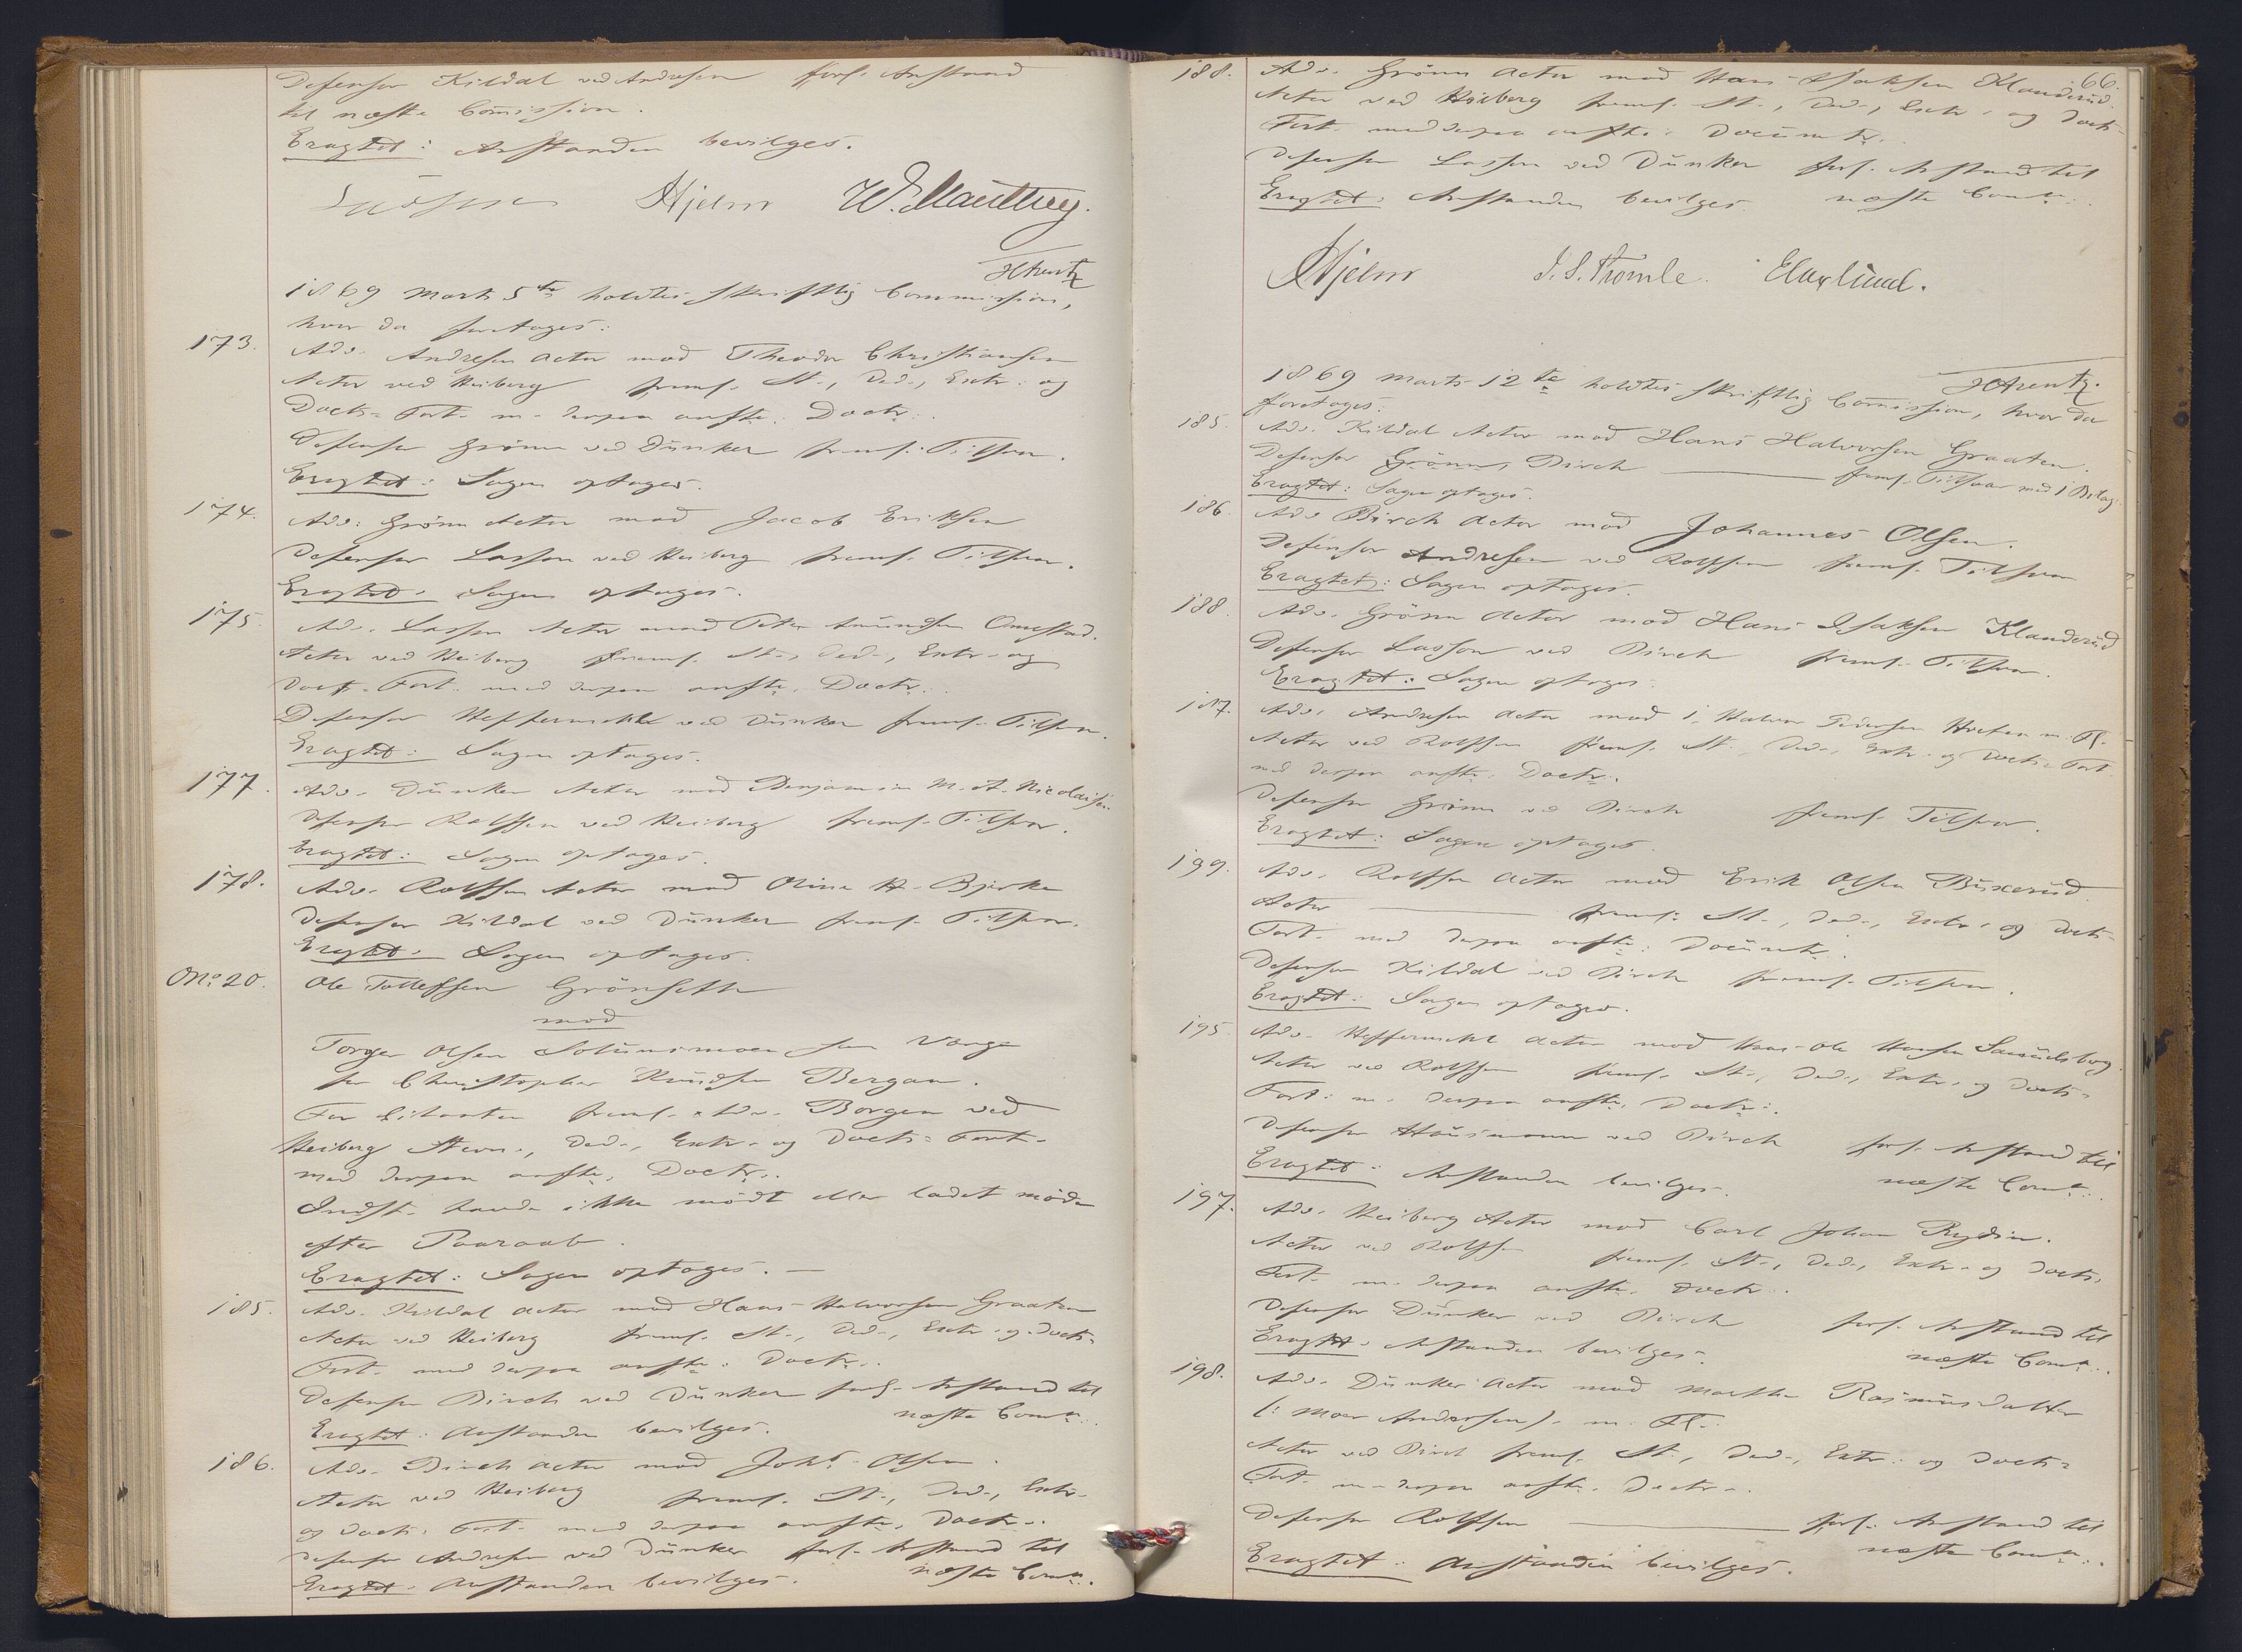 Defensor Kildal ved Andresen forl. Anstand
til næste Commission.
Eragtet: Anstanden bevilges.
Hjelm
HArentz
1869 Marts 5te holdtes skriftlig Commission,
hvor da foretages:
173. Adv. Andresen Actor mod Theodor Christiansen
Actor ved Heiberg freml. St., Ded., Extr. og
Docts. Fort. m. derpaa anfte. Doctr.
Defensor Grönn ved Dunker freml. Tilsvar.
Eragtet: Sagen optages.
174. Adv. Grönn Actor mod Jacob Eriksen
Defensor Lasson ved Heiberg freml. Tilsvar.
Eragtet: Sagen optages.
175. Adv. Lasson Actor mod Peter Amundsen
Actor ved Heiberg freml. St., Ded., Extr. og
Docts. Fort. med derpaa anfte. Doctr.
Defensor Heffermehl ved Dunker freml. Tilsvar.
Eragtet: Sagen optages.
177. Adv. Dunker Actor mod Benjamin M. A. Nicolaisen
Defensor Rolfsen ved Heiberg freml. Tilsvar.
Eragtet: Sagen optages.
178. Adv. Rolfsen Actor mod Oline H. Bjerke
Defensor Kildal ved Dunker freml. Tilsvar.
Eragtet: Sagen optages.
No. 20. Ole Tollefsen Grönseth
mod
Torger Olsen Solumsmoen som Værge
for Christopher Knudsen Bergan.
For Citanten freml. Adv. Borgen ved
Heiberg Stevn., Ded., Extr. og Docts. Fort.
med derpaa anfte. Doctr.
Indst. havde ikke mödt eller ladet möde
efter Paaraab.
Eragtet: Sagen optages. —
185. Adv. Kildal Actor mod Hans Halvorsen Graaten
Actor ved Heiberg freml. St., Ded., Extr. og Docts.
Fort. med derpaa anfte. Doctr.
Defensor Birch ved Dunker forl. Anstand til
næste Comn.
Eragtet: Anstanden bevilges.
186. Adv. Birch Actor mod Johs. Olsen.
Actor ved Heiberg freml. St., Ded., Extr.
og Docts. Fort. med derpaa anfte. Doctr.
Defensor Andresen ved Dunker forl. Anstand til
næste Comn.
Eragtet: Anstanden bevilges.
66.
188. Adv. Grönn Actor mod Hans Isaksen Klanderud.
Actor ved Heiberg freml. St., Ded., Extr. og Docts.
Fort. med derpaa anfte. Documtr.
Defensor Lasson ved Dunker forl. Anstand til
næste Comn.
Eragtet: Anstanden bevilges.
Hjelm J. S. Thomle. E Mariboe
HArentz.
1869 Marts 12te holdtes skriftlig Commission, hvor da
foretages:
185. Adv. Kildal Actor mod Hans Halvorsen Graaten.
Defensor Birch — freml. Tilsvar med 1 Bilag.
Eragtet: Sagen optages.
186. Adv. Birch Actor mod Johannes Olsen.
Defensor Andresen ved Rolfsen freml. Tilsvar
Eragtet: Sagen optages.
188. Adv. Grönn Actor mod Hans Isaksen Klanderud
Defensor Lasson ved Birch freml. Tilsvar.
Eragtet: Sagen optages.
Adv. Andresen Actor mod 1, Halvor Pedersen m. Fl.
Actor ved Rolfsen freml. St., Ded., Extr. og Docts. Fort.
med derpaa anfte. Doctr.
Defensor Grönn ved Birch freml. Tilsvar.
Eragtet: Sagen optages.
199. Adv. Rolfsen Actor mod Erik Olsen Buxerud.
Actor — freml. St., Ded., Extr. og Docts.
Fort. med derpaa anfte. Documtr.
Defensor Kildal ved Birch freml. Tilsvar.
Eragtet: Sagen optages.
195. Adv. Heffermehl Actor mod Hans Ole Hansen Samuelsberg.
Actor ved Rolfsen freml. St., Ded., Extr. og Docts.
Fort. m. derpaa anfte. Doctr.
Defensor Hausmann ved Birch forl. Anstand til
næste Comn.
Eragtet: Anstanden bevilges.
197. Adv. Heiberg Actor mod Carl Johan Rydin.
Actor ved Rolfsen freml. St., Ded., Extr. og Docts.
Fort. m. derpaa anfte. Doctr.
Defensor Dunker ved Birch forl. Anstand til
næste Comn.
Eragtet: Anstanden bevilges.
198. Adv. Dunker Actor mod Marthe Rasmusdatter
(: Moer Andersen) m. Fl.
Actor ved Birch freml. St., Ded., Extr. og Docts.
Fort. m. derpaa anfte. Doctr.
Defensor Rolfsen — forl. Anstand til
næste Comn.
Eragtet: Anstanden bevilges.